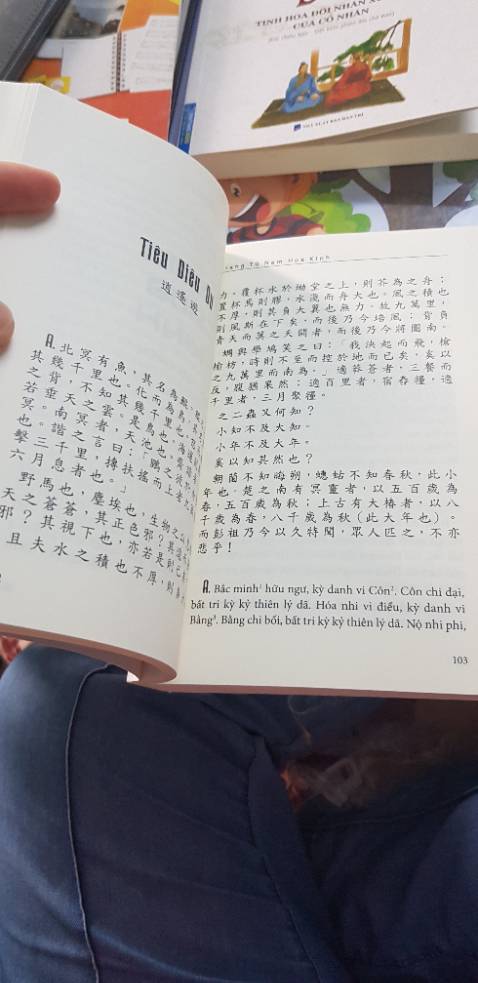 TINH HOA ĐỐI NHÂN X
CỦA CỔ NHÂN
Tiêu Diêu Du
逍遙遊
A. 北冥有魚，其名為鯤。鯤
其幾千里也。化而為鳥，其名
之背，不知其幾千里也。
若垂天之雲。是鳥也，海運
冥。南冥者，天池也。
也。諧之言曰：「鵬
擊三千里，摶扶搖而上者
六月息者也。」
野馬也，塵埃也，生物之以
天之蒼蒼，其正色邪？其遠
邪？其視下也，亦若是則已
且夫水之積也不厚，則
Trang Tử Nam Hoa Kinh
力。覆杯水於坳堂之上，則芥為之舟；
置杯焉則膠，水淺而舟大也。風之積也
不厚，則其負大翼也無力。故九萬里，
則風斯在下矣，而後乃今培風；背負
青天而莫之夭閼者，而後乃今將圖南。
蜩與學鳩笑之曰：「我決起而飛，槍
榆枋，時則不至而控於地而已矣，奚以
之九萬里而南為。」適莽蒼者，三餐而
反，腹猶果然；適百里者，宿舂糧，適
千里者，三月聚糧。
之二蟲又何知？
小知不及大知。
小年不及大年。
奚以知其然也？
朝菌不知晦朔，蟪蛄不知春秋，此小
年也。楚之南有冥靈者，以五百歲為
春，五百歲為秋；上古有大椿者，以八
千歲為春，八千歲為秋（此大年也）。
而彭祖乃今以久特聞，眾人匹之，不亦
悲乎！
A. Bắc minh¹ hữu ngư, kỳ danh vi Côn². Côn chi đại,
bất tri kỳ kỷ thiên lý dã. Hóa nhi vi điểu, kỳ danh vi
Bằng³. Bằng chi bối, bất tri kỳ kỷ thiên lý dã. Nộ nhi phi,
103